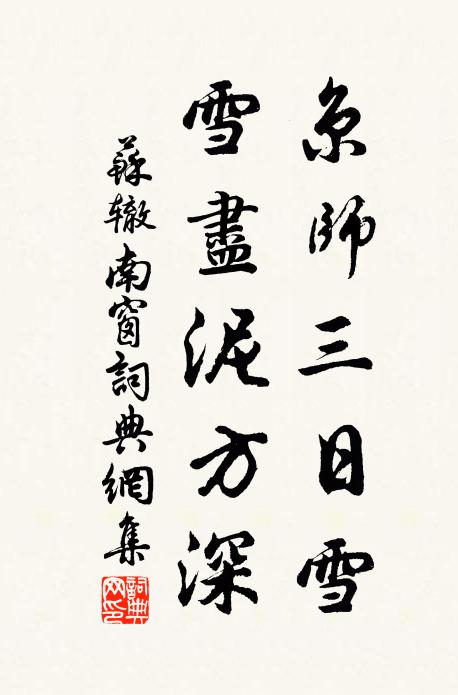 京師三日雪
雪盡泥方深
蘇辙南窗詞典網集
詞典
网印